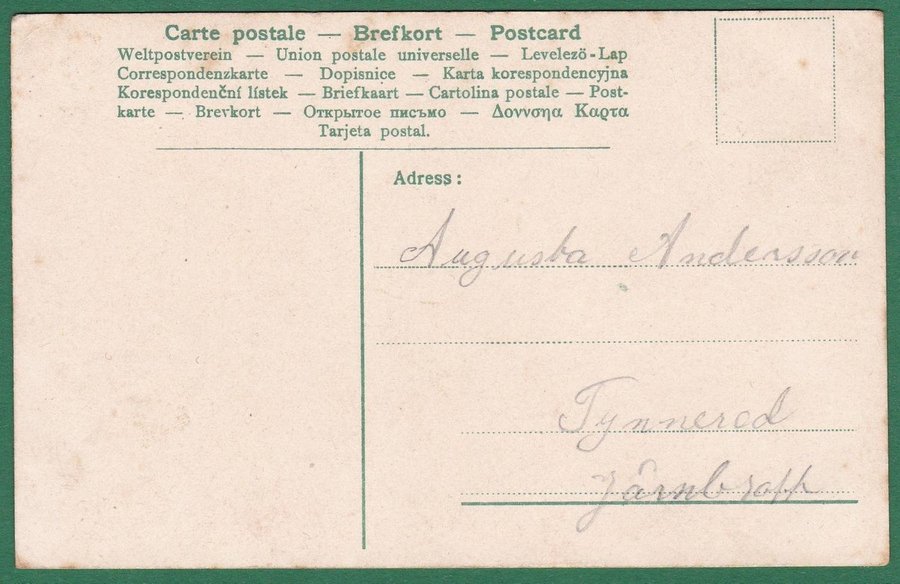 Carte postale — Brefkort — Postcard
Weltpostverein — Union postale universelle — Levelező-Lap
Correspondenzkarte — Dopisnice — Karta korespondencyjna
Korespondenční lístek — Briefkaart — Cartolina postale — Post-
karte — Brevkort — Открытое письмо — Δοννσηα Καρτα
Tarjeta postal.
Adress:
Augusta Andersson
Tynnered
Järnbrott